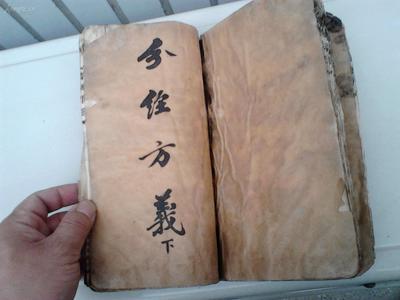 分经方義下